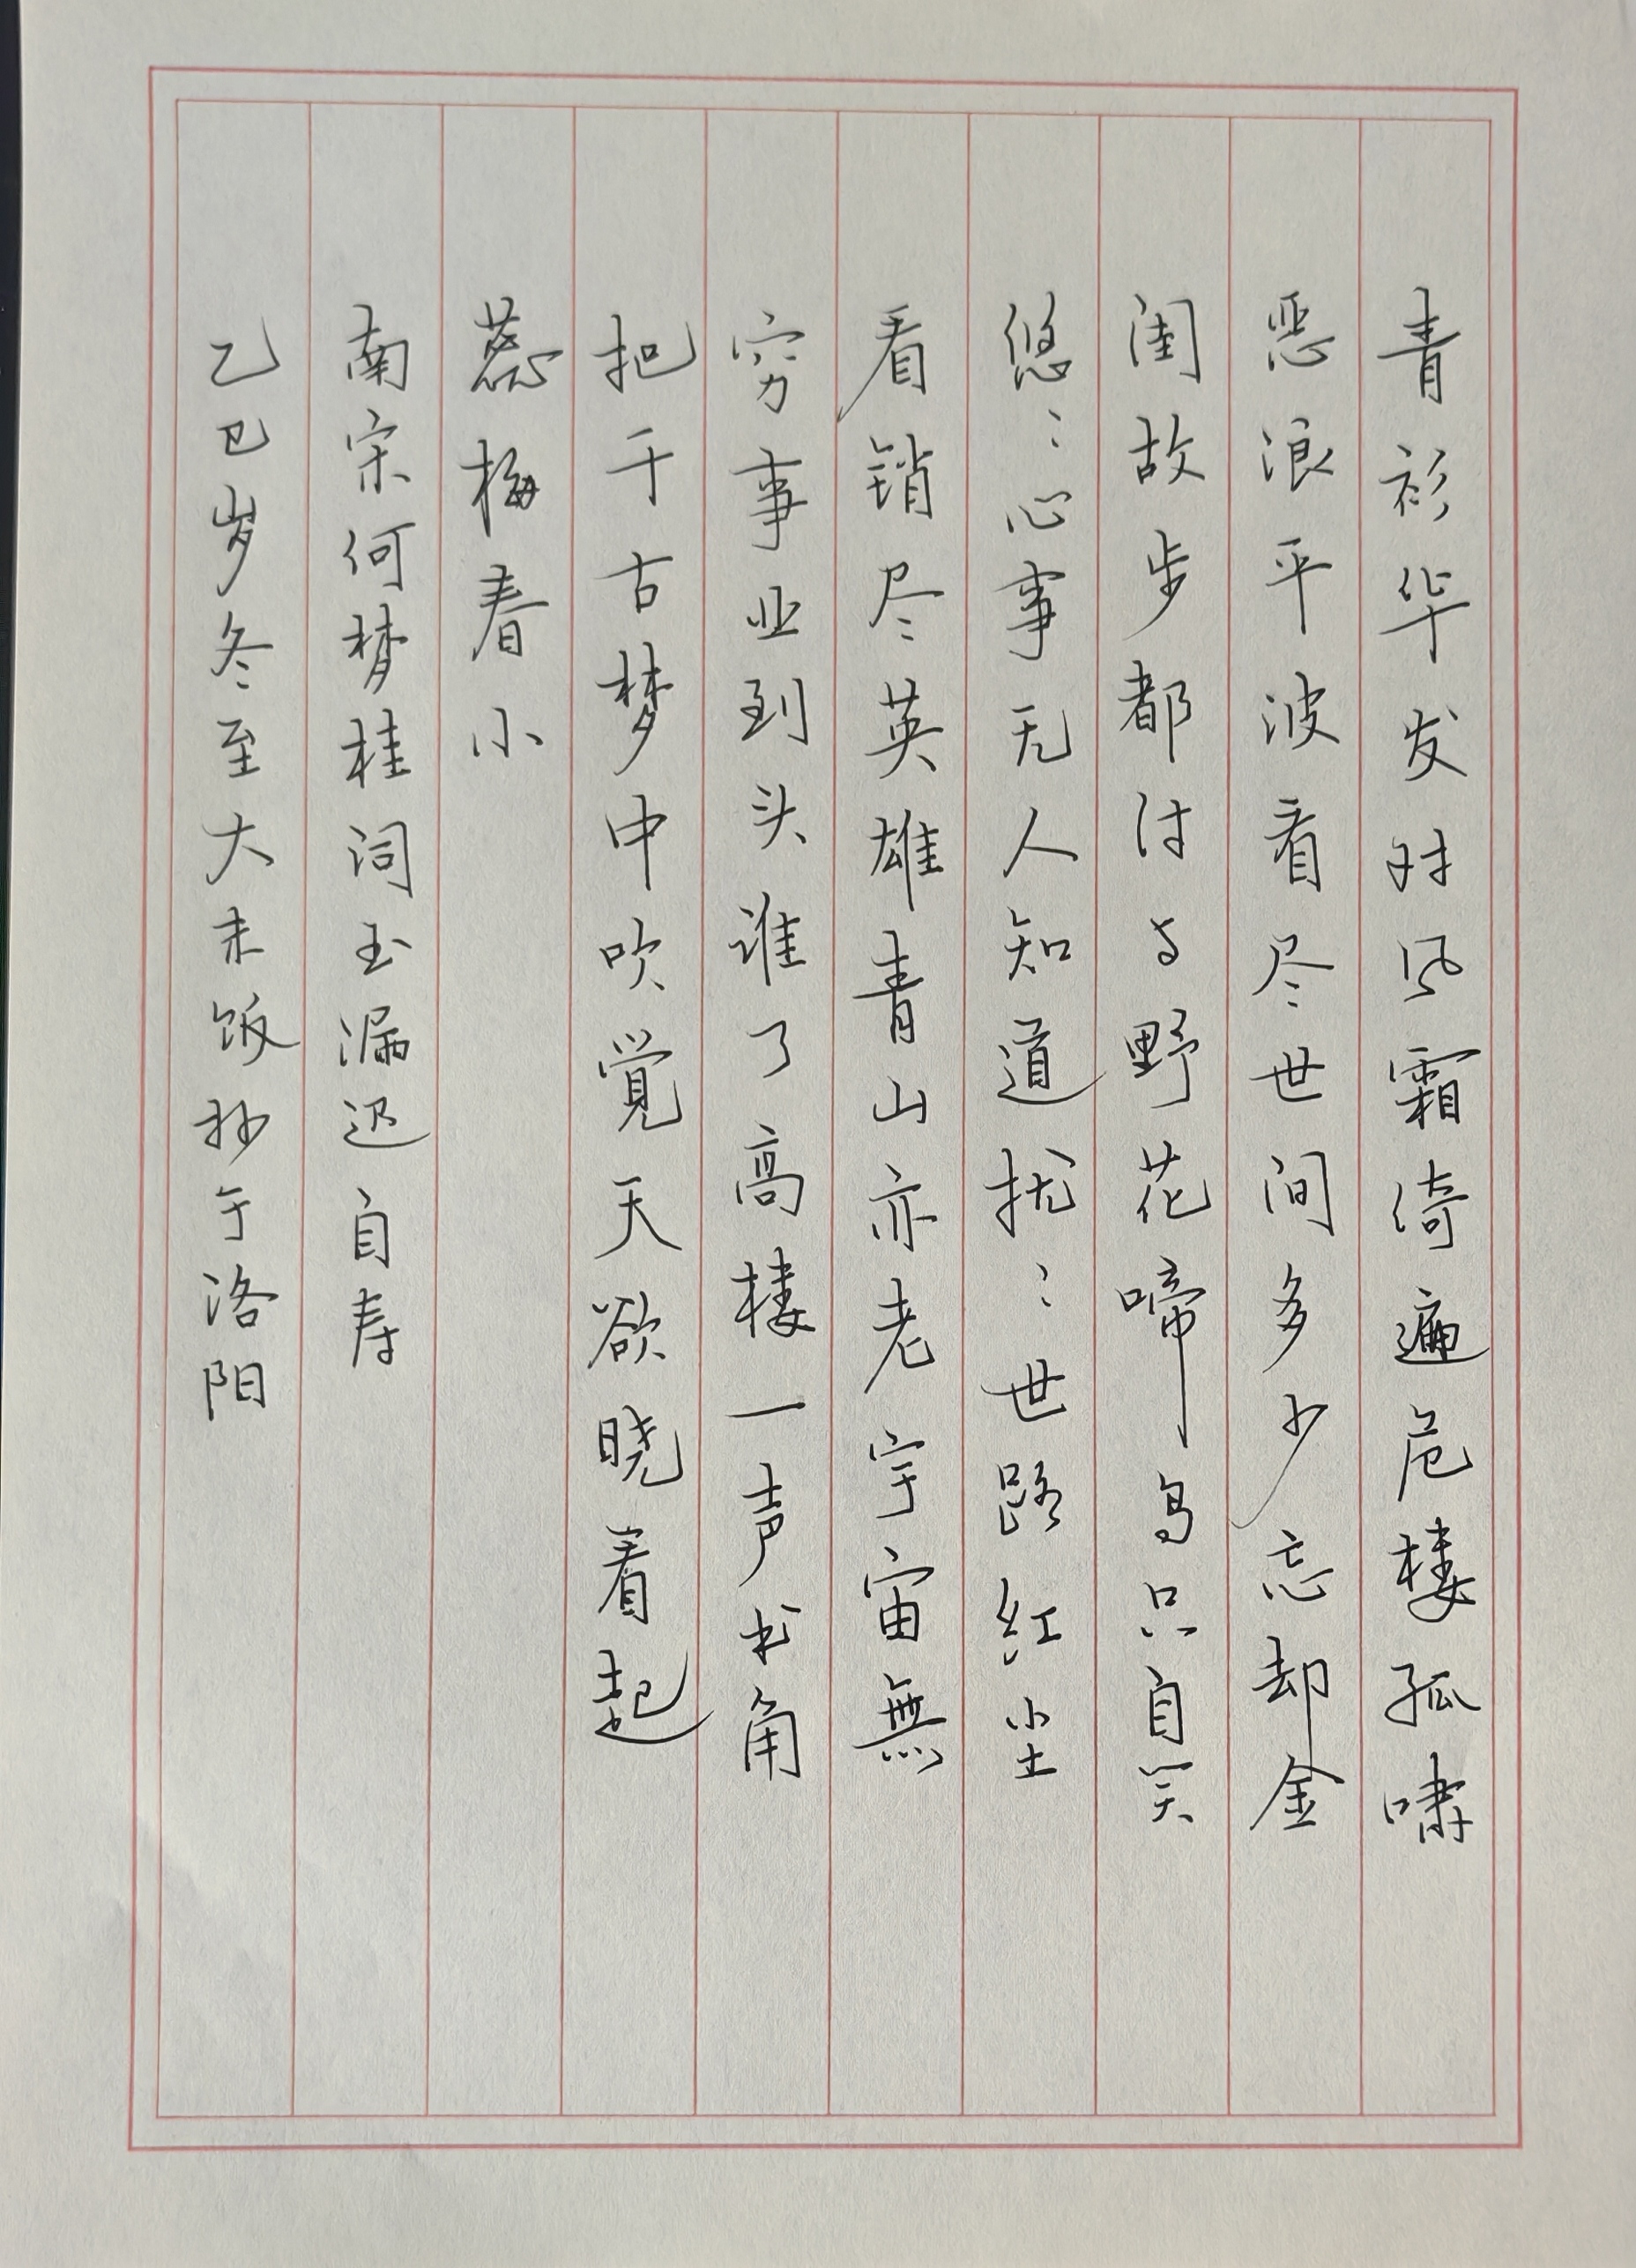 青衫华发对风霜倚遍危楼孤啸
恶浪平波看尽世间多少忘却金
闺故步都付与野花啼鸟只自笑
悠〻心事无人知道扰〻世路红尘
看销尽英雄青山亦老宇宙無
穷事业到头谁了高楼一声书角
把千古梦中吹觉天欲晓看起
蕊梅春小
南宋何梦桂词玉漏迟自寿
乙巳岁冬至大未饭抄于洛阳